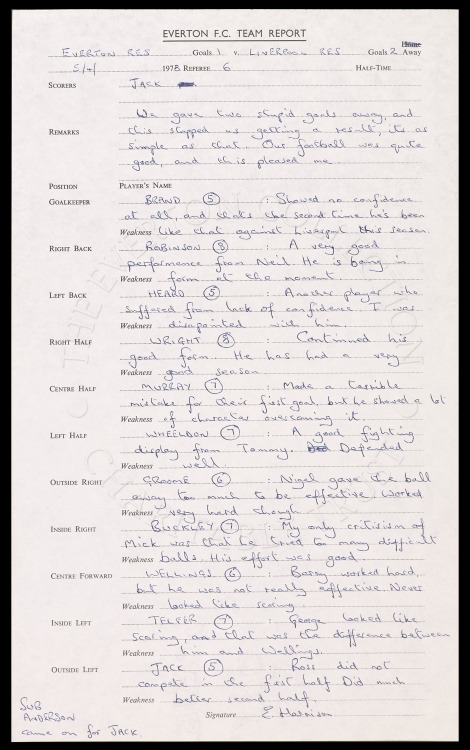 EVERTON F.C. TEAM REPORT
EVERTON RES Goals 1 v. LIVERPOOL RES Goals 2 Home Away
5/4/ 1978 REFEREE 6 HALF-TIME
SCORERS JACK
We gave two stupid goals away, and
REMARKS this stopped us getting a result, its as
simple as that. Our football was quite
good, and this pleased me.
POSITION PLAYER'S NAME
GOALKEEPER BRAND (5) : Showed no confidence
at all, and thats the second time he's been
Weakness like that against Liverpool this season.
RIGHT BACK ROBINSON (8) : A very good
performance from Neil. He is being in
Weakness form at the moment.
LEFT BACK HEARD (5) : Another player who
suffered from lack of confidence. I was
Weakness disapointed with him.
RIGHT HALF WRIGHT (8) : Continued his
good form. He has had a very
Weakness good season.
CENTRE HALF MURRAY (7) : Made a terrible
mistake for their first goal, but he showed a lot
Weakness of character overcoming it.
LEFT HALF WHEELDON (7) : A good fighting
display from Tommy. Defended
Weakness well.
OUTSIDE RIGHT GROOME (6) : Nigel gave the ball
away too much to be effective. Worked
Weakness very hard though.
INSIDE RIGHT BUCKLEY (7) : My only critisism of
Mick was that he tried to many difficult
Weakness balls. His effort was good.
CENTRE FORWARD WELLINGS (6) : Barry worked hard,
but he was not really effective. Never
Weakness looked like scoring.
INSIDE LEFT TELFER (7) : George looked like
scoring, and that was the difference between
Weakness him and Wellings.
OUTSIDE LEFT JACK (5) : Ross did not
compete in the first half. Did much
Weakness better second half.
Signature E. Harrison
SUB
ANDERSON
came on for JACK.